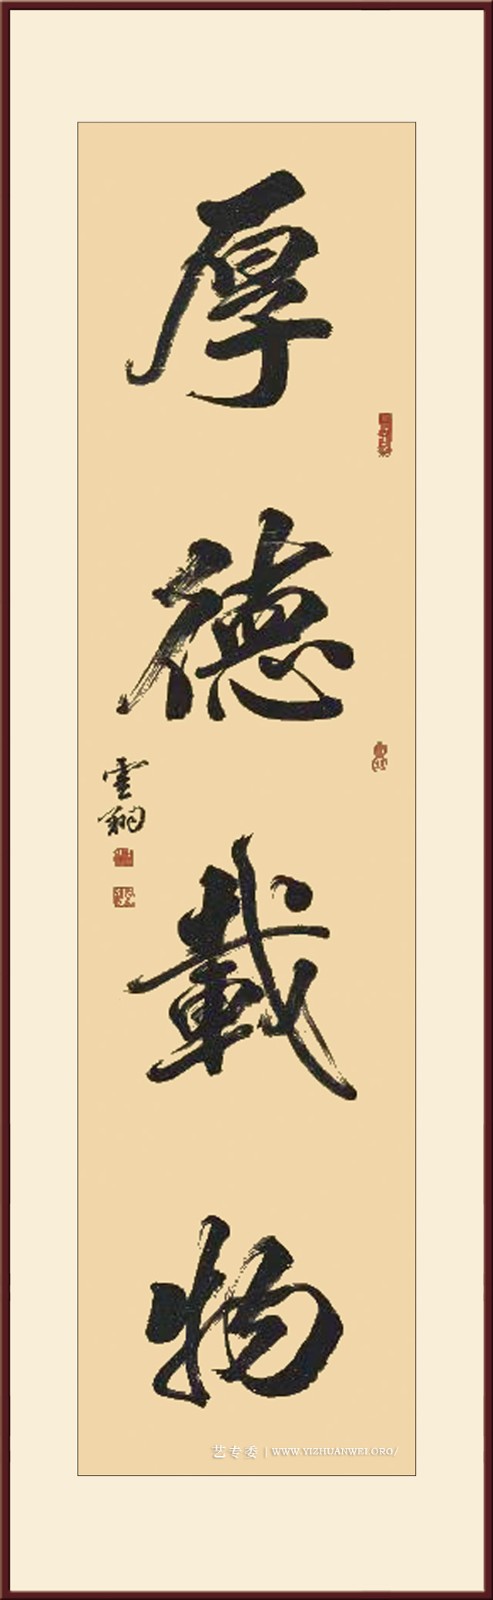 厚德載物
雲翔
艺专委 | WWW.YIZHUANWEI.ORG/